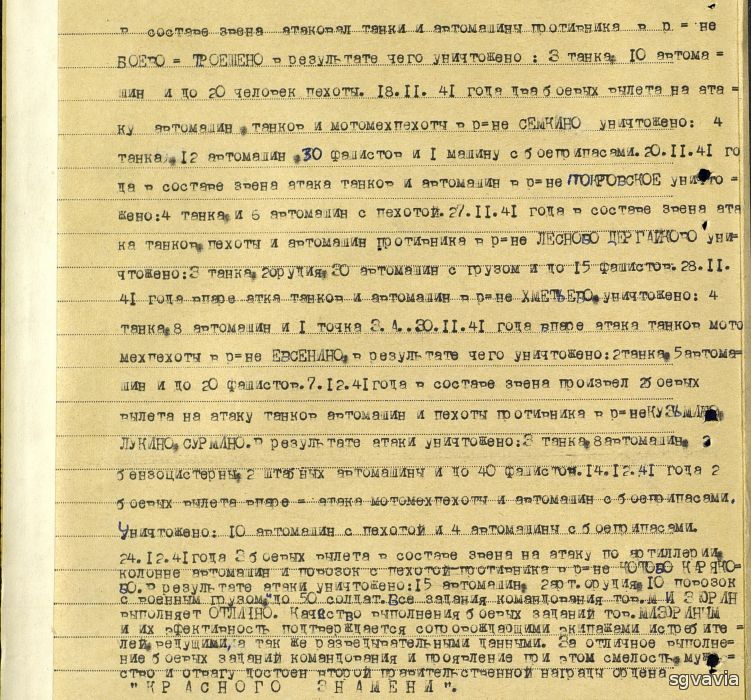 в составе звена атаковал танки и автомашины противника в р=не
БОЕВО = ТРОЕШЕНО в результате чего уничтожено : 3 танка, 10 автома=
шин и до 20 человек пехоты. 18.11. 41 года два боевых вылета на ата=
ку автомашин, танков и мотомехпехоты в р=не СЕМКИНО уничтожено: 4
танка, 12 автомашин, 30 фашистов и 1 машину с боеприпасами. 20.11.41 го
да в составе звена атака танков и автомашин в р=не ПОКРОВСКОЕ уничто=
жено: 4 танка и 6 автомашин с пехотой. 27.11.41 года в составе звена ата
ка танков, пехоты и автомашин противника в р=не ЛЕСНОВО ДЕРГАЙКОВО уни-
чтожено: 3 танка, 2орудия, 30 автомашин с грузом и до 15 фашистов. 28.11.
41 года впаре атка танков и автомашин в р=не ХМЕТЬЕВО, уничтожено: 4
танка, 8 автомашин и 1 точка З.А..30.11.41 года впаре атака танков мото
мехпехоты в р=не ЕВСЕНИНО, в результате чего уничтожено: 2танка, 5автома=
шин и до 20 фашистов. 7.12.41года в составе звена произвел 2боевых
вылета на атаку танков автомашин и пехоты противника в р=не КУЗЬМИНО,
ЛУКИНО, СУРМИНО. В результате атаки уничтожено: 3 танка, 8автомашин, 2
бензоцистерны, 2 штабных автомашины и до 40 фашистов. 14.12.41 года 2
боевых вылета впаре = атака мотомехпехоты и автомашин с боеприпасами.
Уничтожено: 10 автомашин с пехотой и 4 автомашины с боеприпасами.
24.12.41года 3боевых вылета в составе звена на атаку по артиллерии,
колонне автомашин и повозок с пехотой противника в р=не ЧОТОВО КАРЯКО=
ВО. В результате атаки уничтожено: 15 автомашин, 2арт.орудия, 10 повозок
с военным грузом, до 50 солдат. Все задания командования тов. МИЗЮРИН
выполняет ОТЛИЧНО. Качество выполнения боевых заданий тов. МИЗЮРИНЫМ
и их эфективность подтверждается сопровождающими экипажами истребите=
лей, ведущими, а так же разведывательными данными. За отличное выполне=
ние боевых заданий командования и проявление при этом смелость, муже=
ство и отвагу достоен второй правительственной награды ордена
"КРАСНОГО ЗНАМЕНИ".
sgvavia